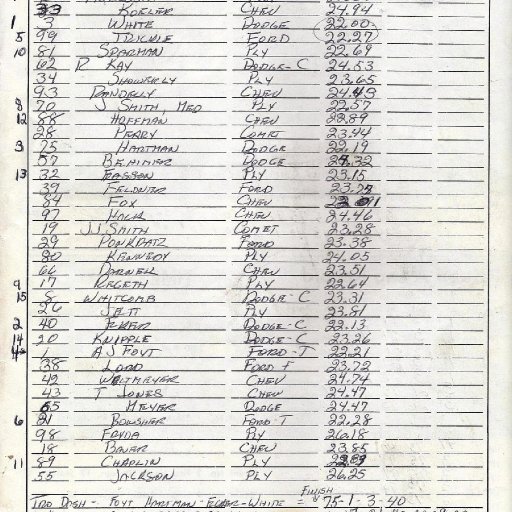 33 KOELER CHEV 24.94
1 3 WHITE DODGE 22.00
5 99 TRICKLE FORD 22.27
10 81 SPARMAN PLY 22.69
62 R KAY DODGE-C 24.53
34 SHOWERLY PLY 23.65
93 CHEV 24.43
8 70 J SMITH, MED PLY 22.57
12 88 HOFFMAN CHEV 22.89
28 PERRY COMET 23.44
3 75 HARTMAN DODGE 22.19
57 BEHIMER DODGE 24.32
13 32 PLY 23.15
39 FELDNER FORD
84 FOX CHEV
97 HACK CHEV 24.46
19 JJ SMITH COMET 23.28
29 PONKRATZ FORD 23.38
80 KENNEDY PLY 24.05
66 DARNELL CHEV 23.51
9 17 REGETH PLY 22.64
15 8 WHITCOMB DODGE-C 23.31
26 PLY 23.81
2 40 DODGE-C 22.13
14 20 KNIPPLE DODGE-C 23.26
4 1 AJ FOYT FORD-T 22.21
38 LORD FORD F 23.72
42 WELTMEYER CHEV 24.74
43 T JONES CHEV 24.47
55 MEYER DODGE 24.47
6 21 BOWSHER FORD T 22.28
98 FRYDA PLY 26.18
18 BAUER CHEV 23.85
11 89 CHAPLIN PLY
55 JACKSON PLY 26.25
FINISH
TRO DASH - FOYT HARTMAN - WHITE = 75-1-3-40